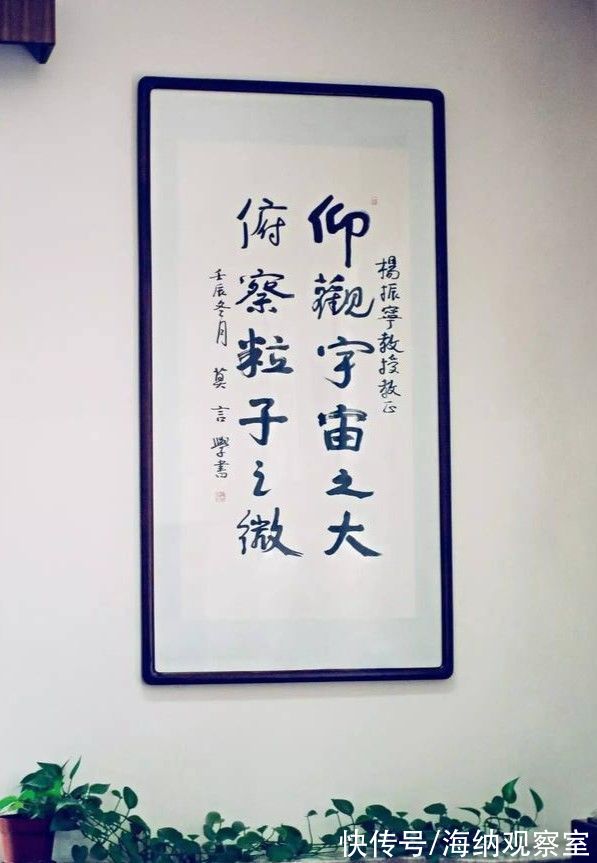 楊振寧教授教正
仰觀宇宙之大
俯察粒子之微
壬辰冬月 莫言學書
快传号/海纳观察室